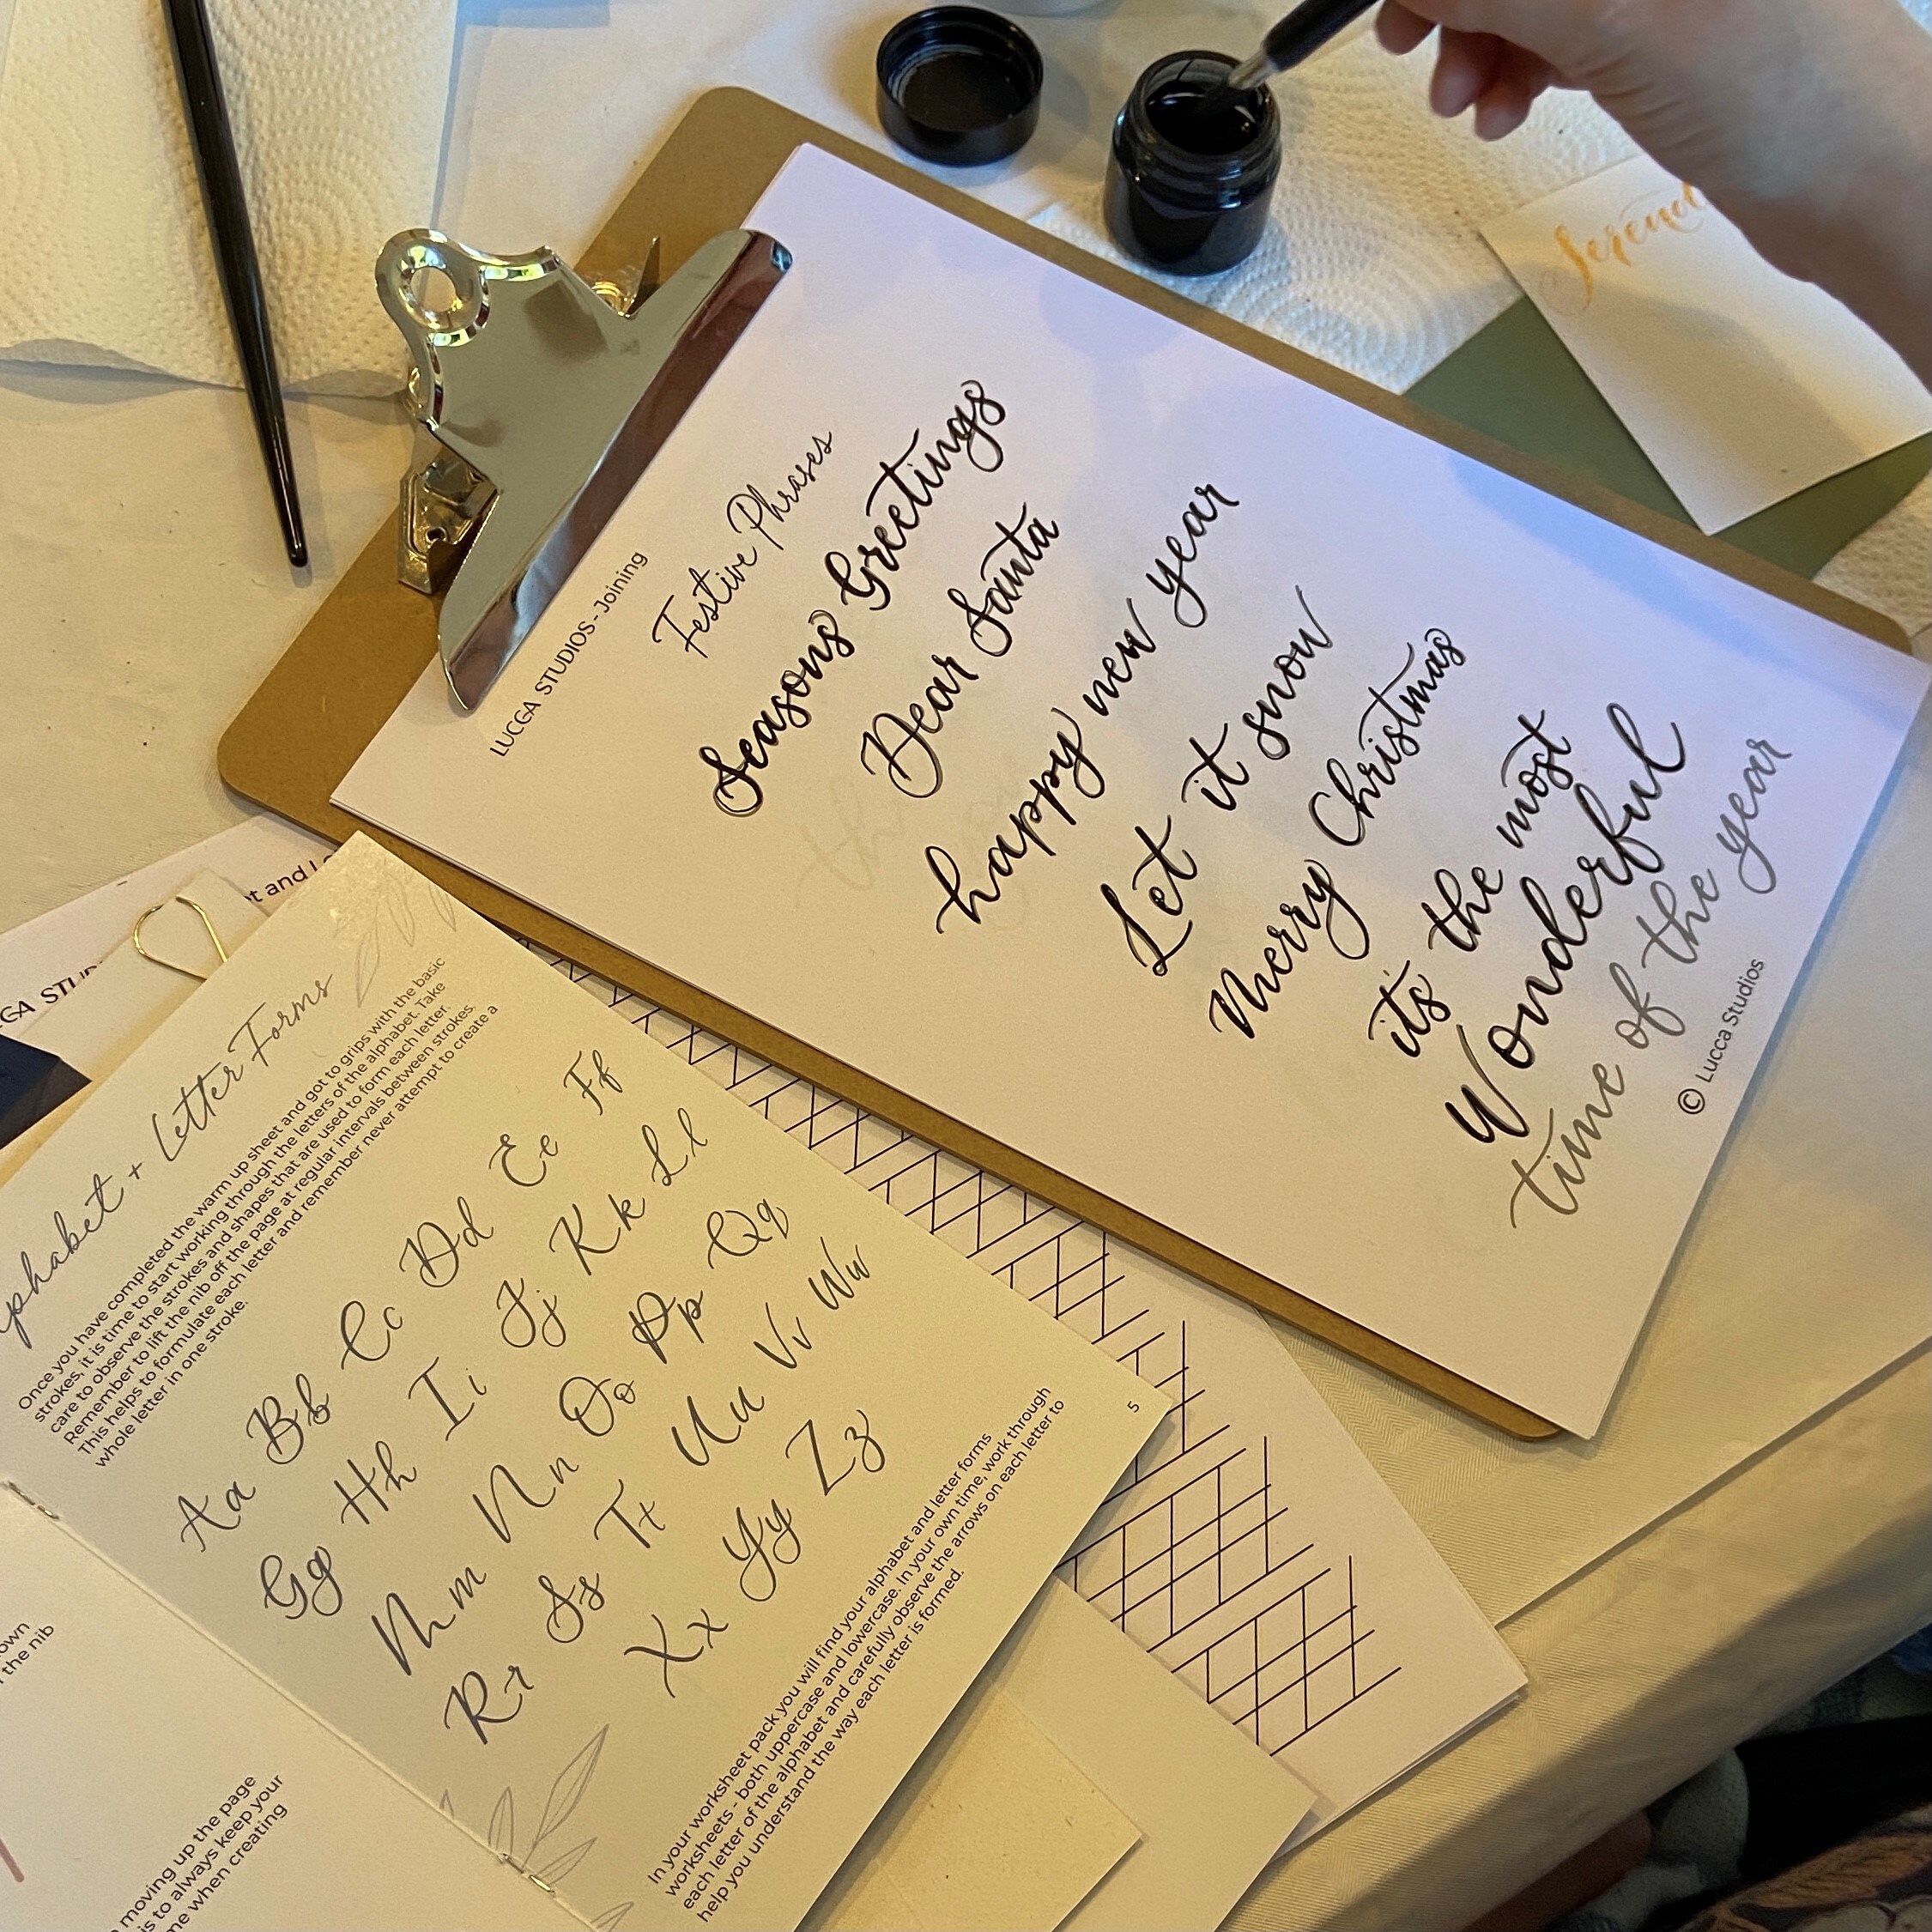 LUCCA STUDIOS - Joining
Festive Phrases
Seasons Greetings
Dear Santa
happy new year
Let it snow
Merry Christmas
its the most
Wonderful
time of the year
© Lucca Studios
phabet + Letter Forms
Once you have completed the warm up sheet and got to grips with the basic
strokes, it is time to start working through the letters of the alphabet. Take
care to observe the strokes and shapes that are used to form each letter.
Remember to lift the nib off the page at regular intervals between strokes.
This helps to formulate each letter and remember never attempt to create a
whole letter in one stroke.
Aa Bb Cc Dd Ee Ff
Gg Hh Ii Jj Kk Ll
Mm Nn Oo Pp Qq
Rr Ss Tt Uu Vv Ww
Xx Yy Zz
In your worksheet pack you will find your alphabet and letter forms
worksheets - both uppercase and lowercase. In your own time, work through
each letter of the alphabet and carefully observe the arrows on each letter to
help you understand the way each letter is formed.
5
own
the nib
moving up the page
is to always keep your
me when creating
CGA STUD
t and L
Serend